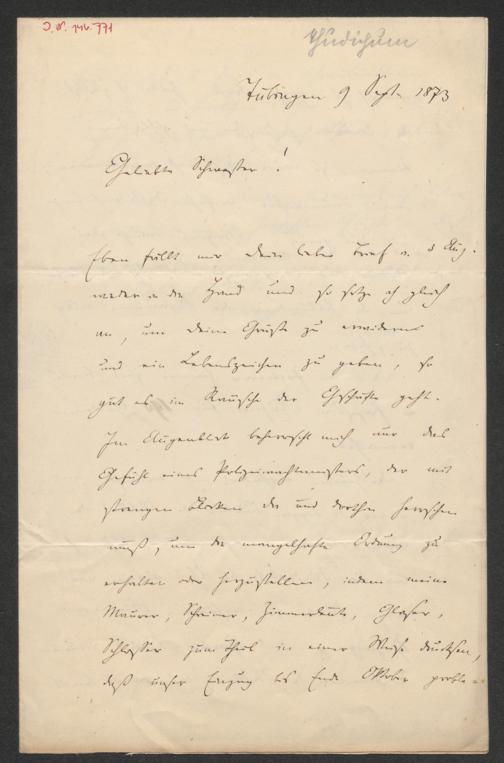 J. N. 146.771
Thudichum
Tübingen 9 Sept. 1873
Geliebte Schwester!
Eben fällt mir Dein lieber Brief v. 3 Aug.
wieder in die Hand und so setze ich gleich
an, um Deine Grüße zu erwidern
und ein Lebenszeichen zu geben, so
gut es im Rausche der Geschäfte geht.
Im Augenblick beherrscht mich nur das
Gefühl eines Polizeiwachtmeisters, der mit
strengen Blicken da und dorthin herrschen
muß, um die mangelhafte Ordnung zu
erhalten oder herzustellen, indem meine
Maurer, Schreiner, Zimmerleute, Glaser,
Schlosser zum Theil in einer Weise
daß unser Einzug bis Ende Oktober proble-